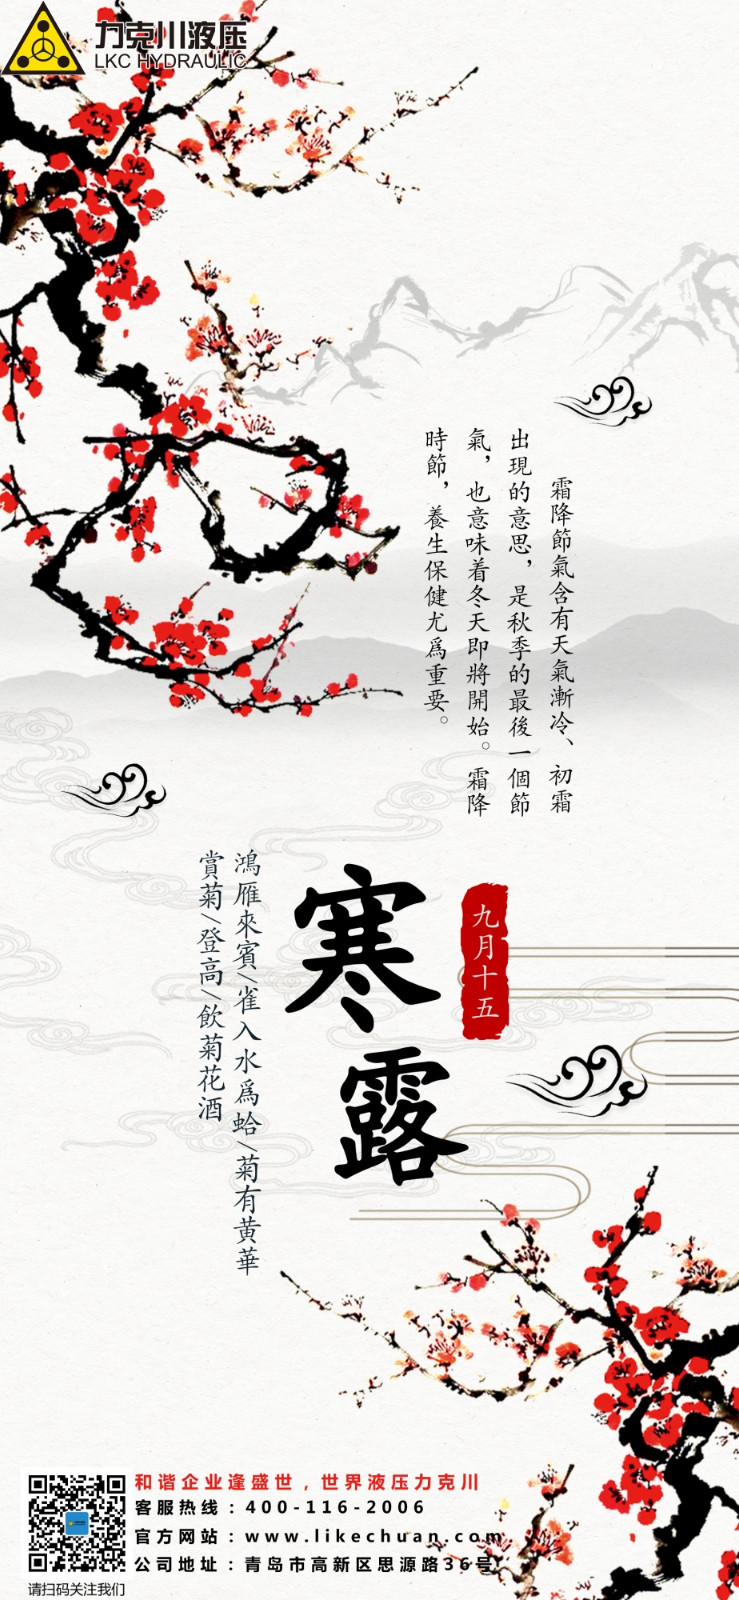 力克川液压
LKC HYDRAULIC
霜降節氣含有天氣漸冷、初霜
出現的意思，是秋季的最後一個節
氣，也意味着冬天即將開始。霜降
時節，養生保健尤爲重要。
九月十五
寒露
鴻雁來賓/雀入水爲蛤/菊有黄華
賞菊/登高/飲菊花酒
和谐企业逢盛世，世界液压力克川
客服热线：400-116-2006
官方网站：www.likechuan.com
公司地址：青岛市高新区思源路36号
请扫码关注我们